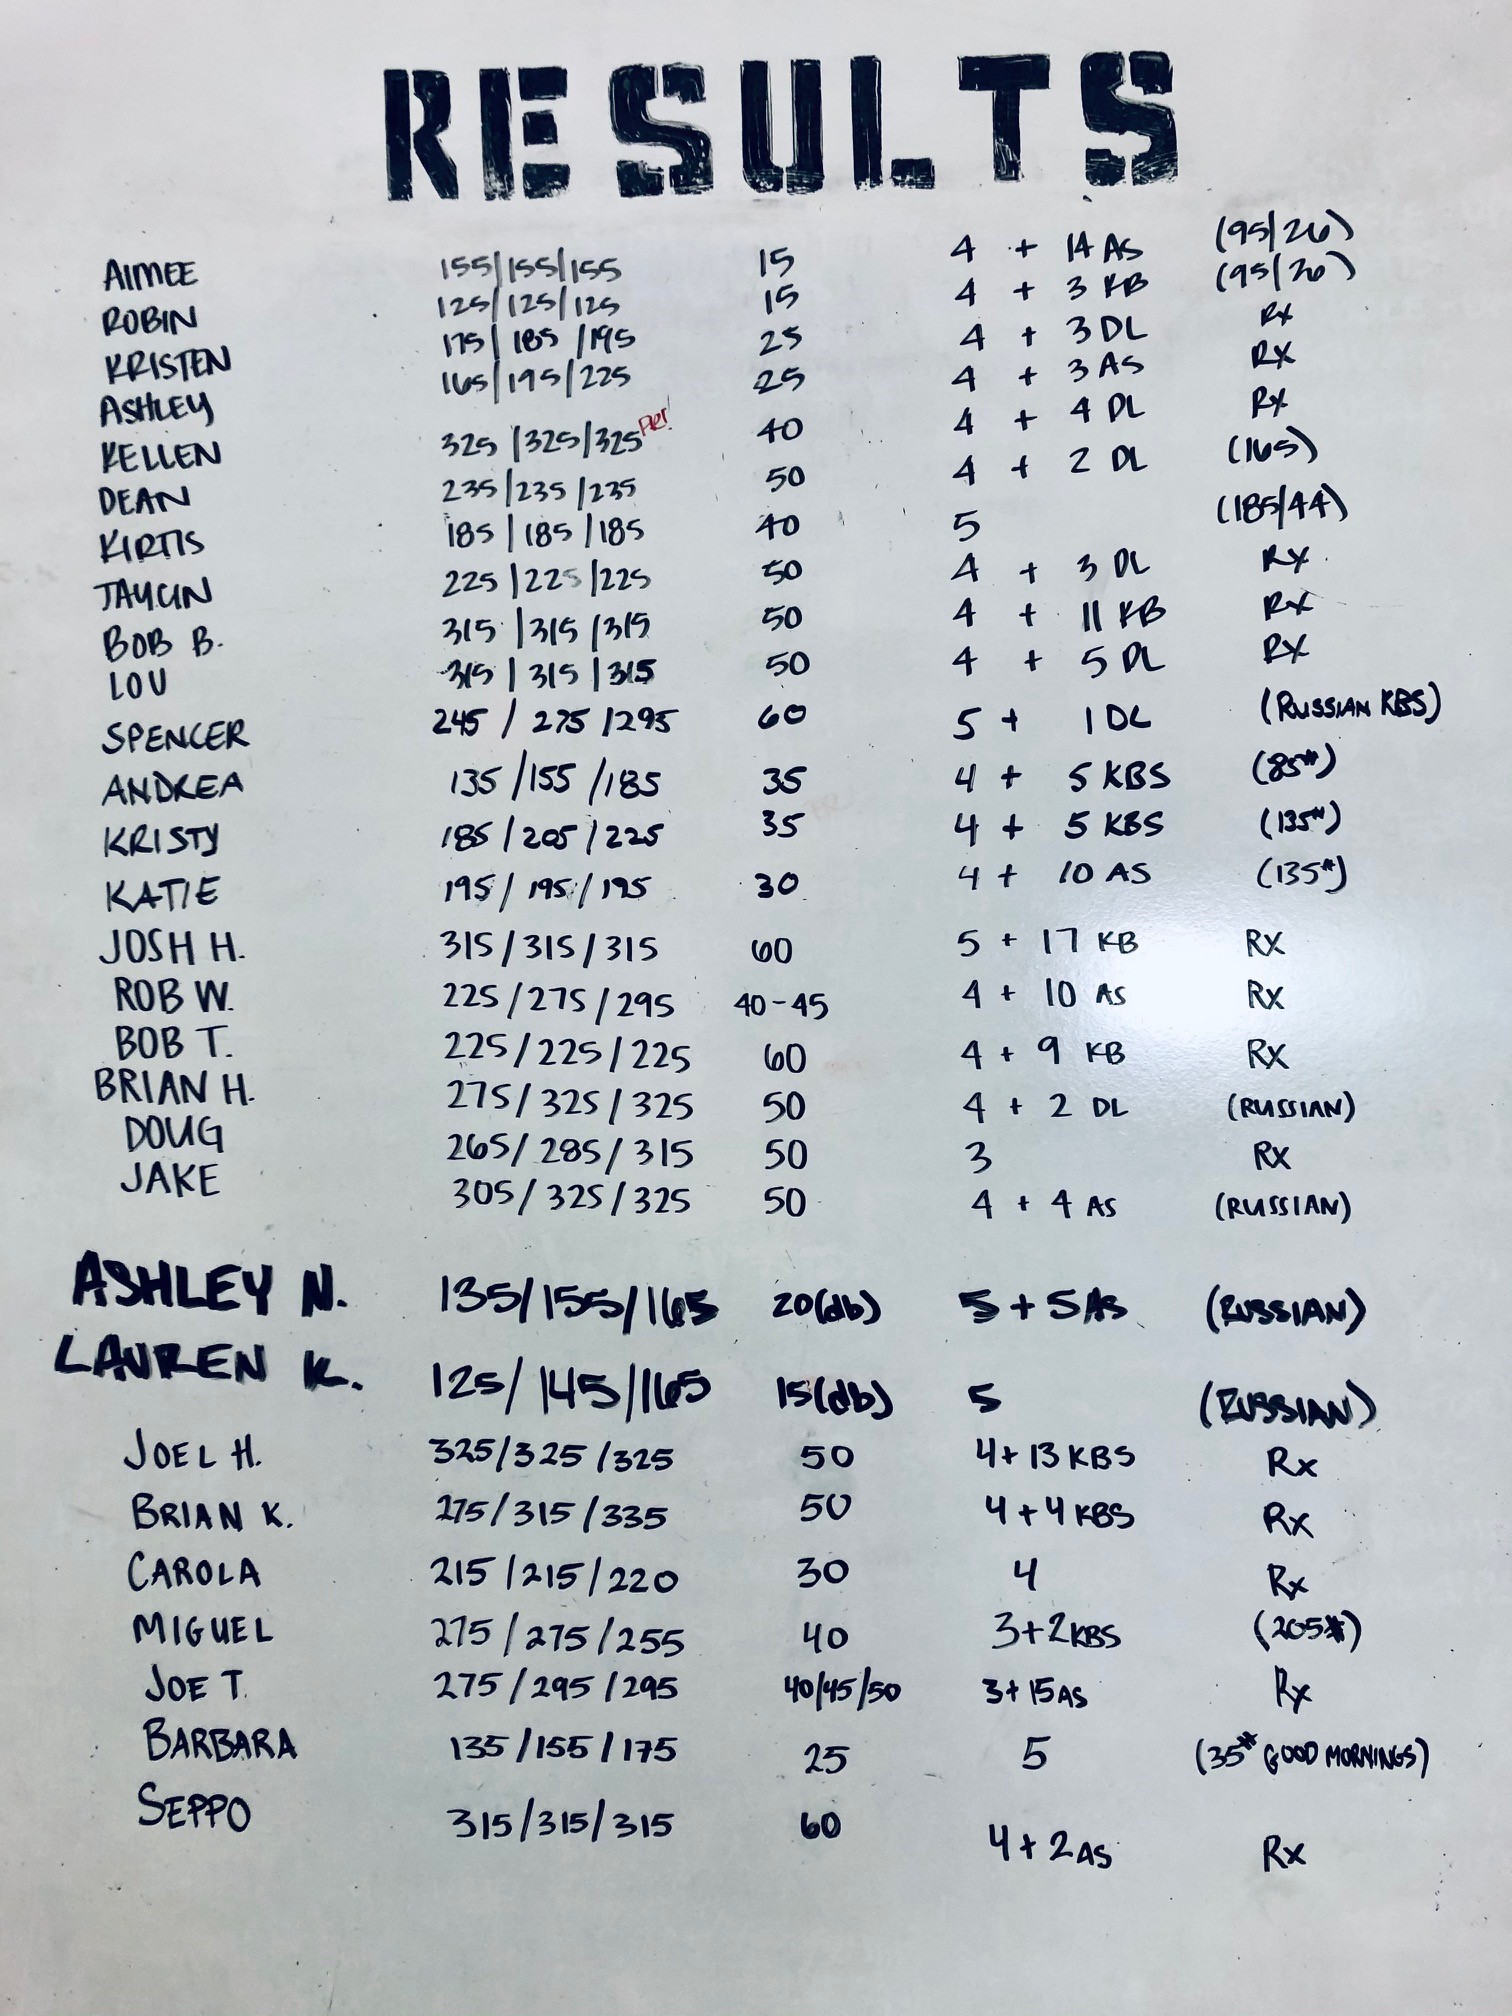 RESULTS
AIMEE 155/155/155 15 4 + 14 AS (95/26)
ROBIN 125/125/125 15 4 + 3 KB (95/26)
KRISTEN 175/185/195 25 4 + 3 DL Rx
ASHLEY 165/195/225 25 4 + 3 AS Rx
KELLEN 325/325/325 40 4 + 4 DL Rx
DEAN 235/235/235 50 4 + 2 DL (165)
KIRTIS 185/185/185 40 5 (185/44)
225/225/225 50 4 + 3 DL Rx
BOB B. 315/315/315 50 4 + 11 KB Rx
LOU 315/315/315 50 4 + 5 DL Rx
SPENCER 245/275/295 60 5 + 1 DL (RUSSIAN KBS)
ANDREA 135/155/185 35 4 + 5 KBS (85#)
KRISTY 185/205/225 35 4 + 5 KBS (135#)
KATIE 195/195/195 30 4 + 10 AS (135#)
JOSH H. 315/315/315 60 5 + 17 KB Rx
ROB W. 225/275/295 40-45 4 + 10 AS Rx
BOB T. 225/225/225 60 4 + 9 KB Rx
BRIAN H. 275/325/325 50 4 + 2 DL (RUSSIAN)
DOUG 265/285/315 50 3 Rx
JAKE 305/325/325 50 4 + 4 AS (RUSSIAN)
ASHLEY N. 135/155/165 20(db) 5 + 5 AS (RUSSIAN)
LAUREN K. 125/145/165 15(db) 5 (RUSSIAN)
JOEL H. 325/325/325 50 4+ 13 KBS Rx
BRIAN K. 275/315/335 50 4 + 4 KBS Rx
CAROLA 215/215/220 30 4 Rx
MIGUEL 275/275/255 40 3+2 KBS (205#)
JOE T. 275/295/295 40/45/50 3+ 15 AS Rx
BARBARA 135/155/175 25 5 (35# GOOD MORNINGS)
SEPPO 315/315/315 60 4 + 2 AS Rx